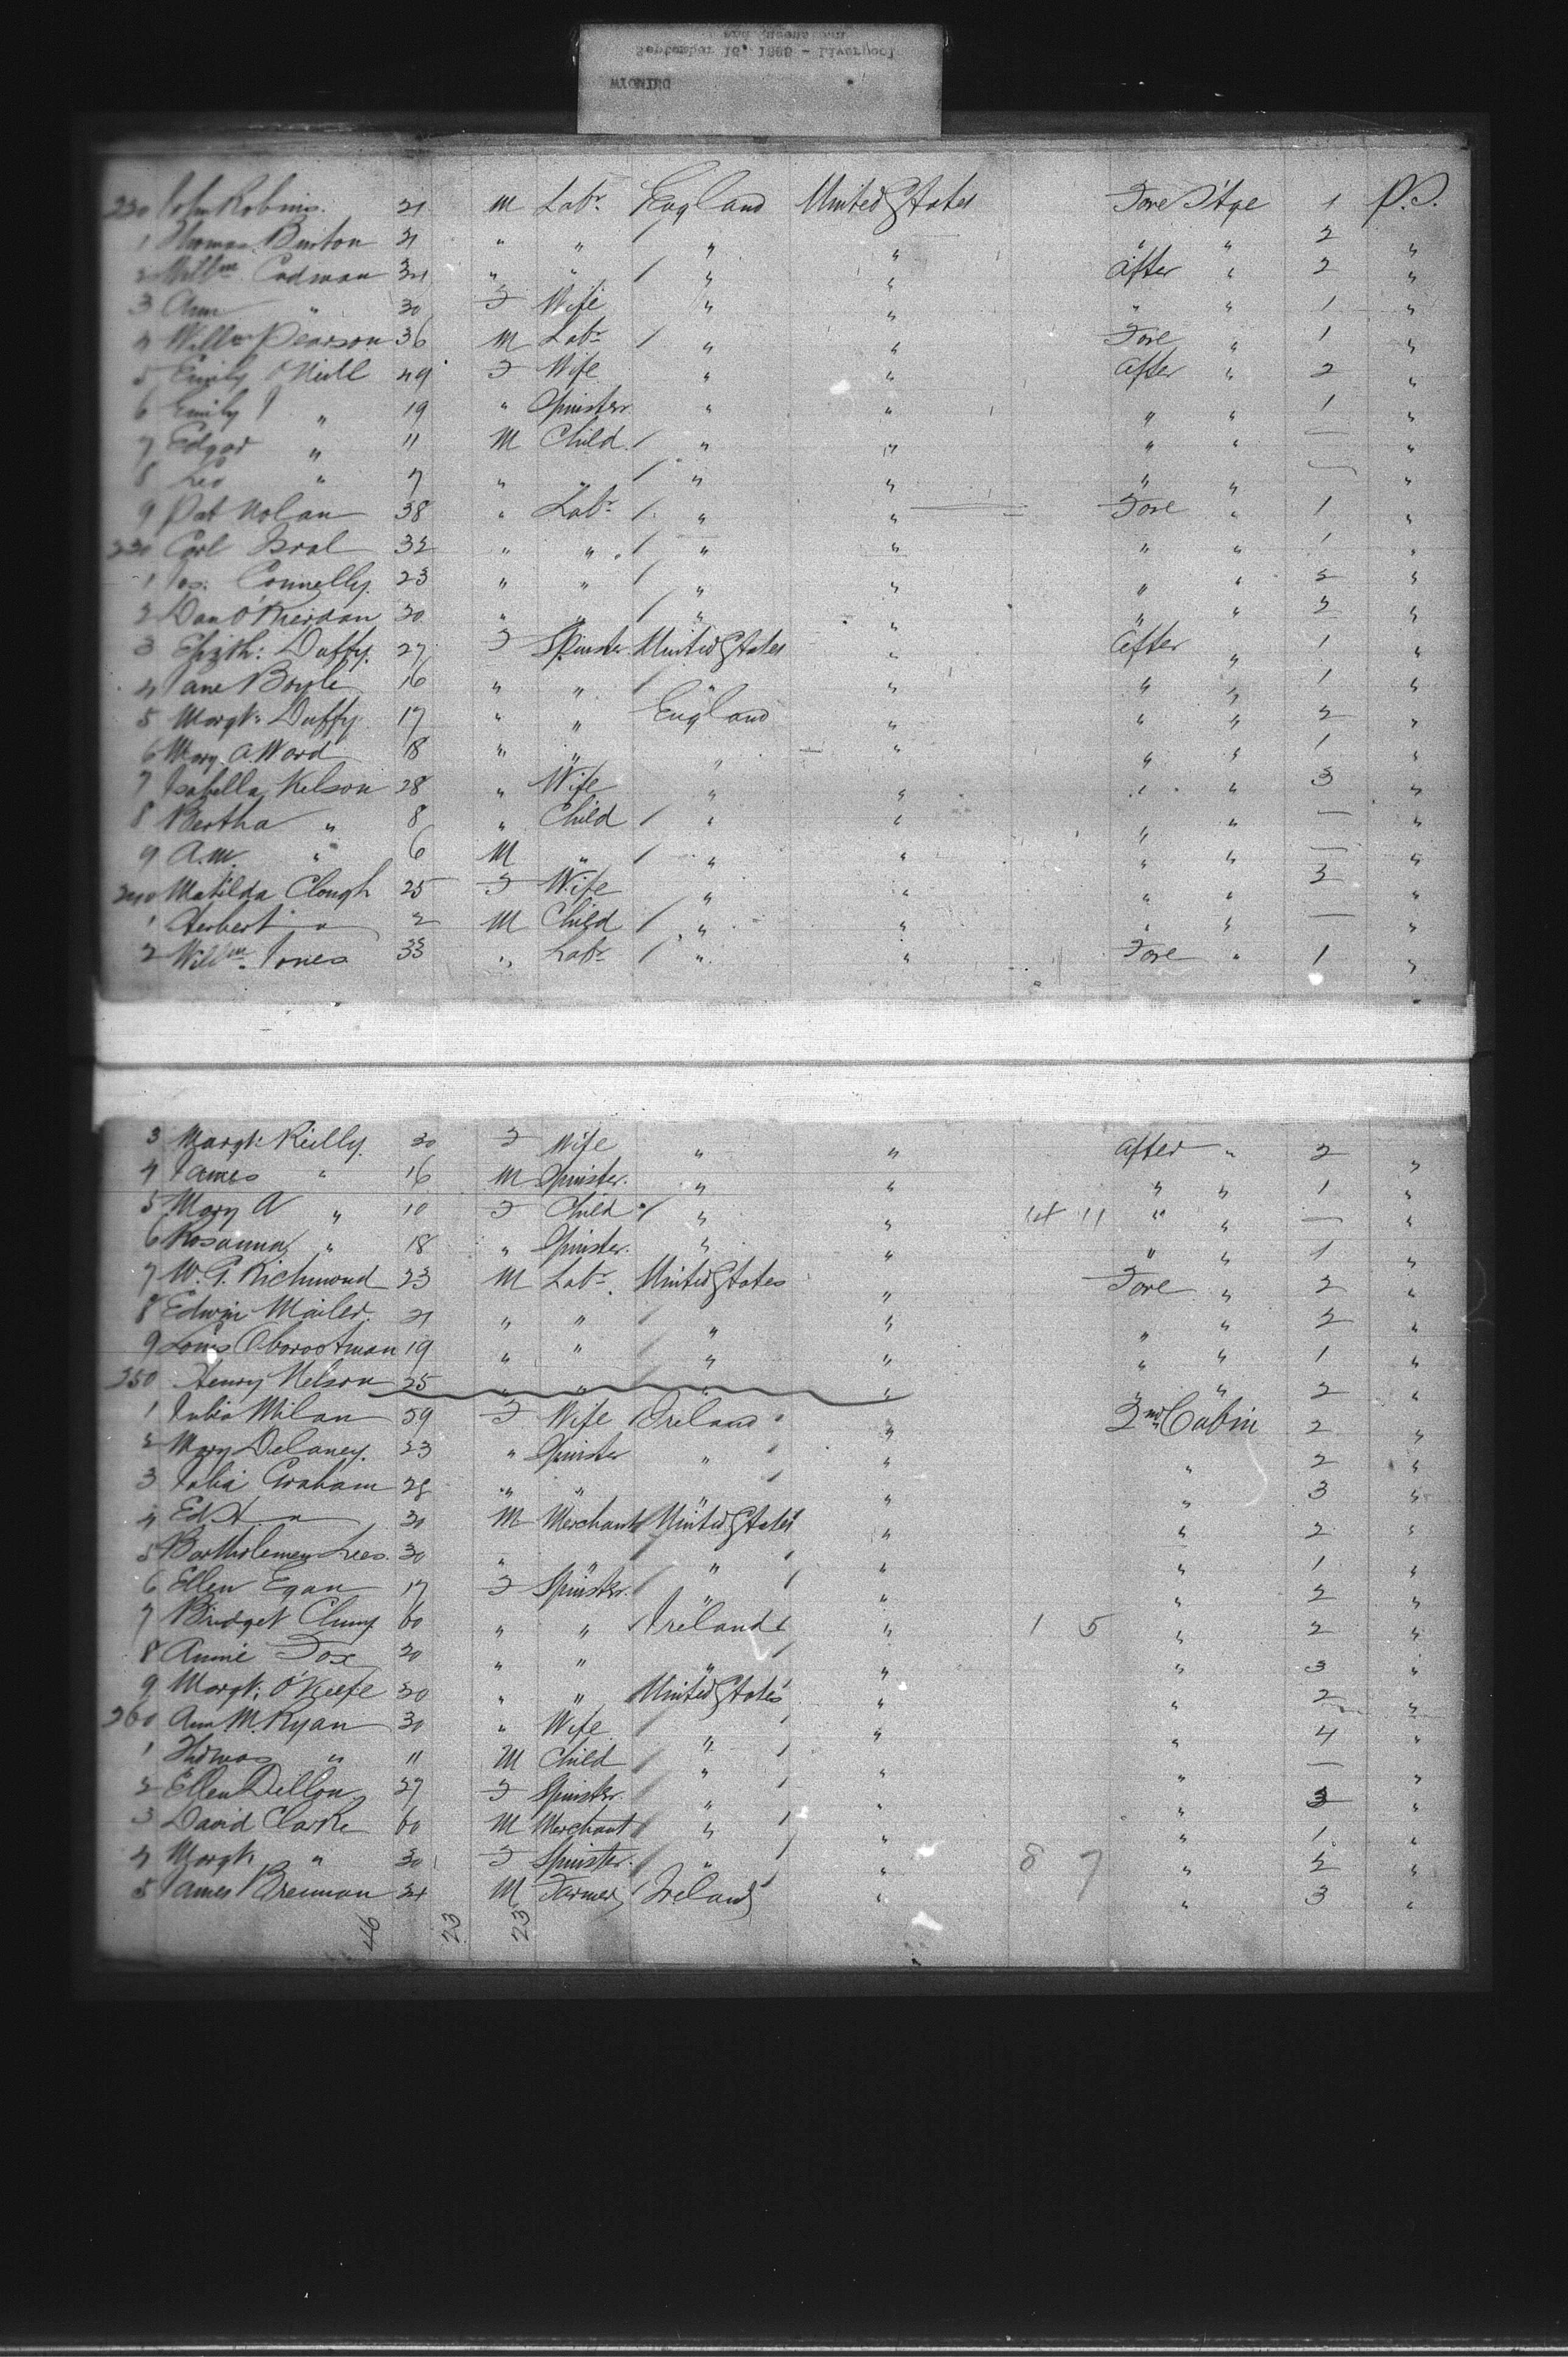 WYOMING
September 16, 1889 - Liverpool
and Queenstown
220 John Robins. 21 M Labr. England United States Fore St'ge 1 P.S.
1 Thomas Burton 21 " " / " " " " 2 "
2 Willm Codman 34 " " / " " After " 2 "
3 Ann " 30 F Wife " " " " 1 "
4 Willm Pearson 36 M Labr / " " Fore " 1 "
5 Emily O'Neill 49 F Wife " " After " 2 "
6 Emily J " 19 " Spinster " " " " 1 "
7 Edgar " 11 M Child / " " " " — "
8 Leo " 7 " " / " " " " — "
9 Pat Nolan 38 " Labr / " " Fore " 1 "
230 Carl Isral 32 " " / " " " " 1 "
1 Jos. Connelly. 23 " " / " " " " 2 "
2 Dan O'Rierdan 30 " " / " " " " 2 "
3 Elizth: Duffy. 27 F Spinster United States " After " 1 "
4 Jane Boyle 16 " " / " " " " 1 "
5 Margt: Duffy 17 " " England " " " 2 "
6 Mary A Ward 18 " " " " " " 1 "
7 Isabella Kelson 28 " Wife " " " " 3 "
8 Bertha " 8 " Child / " " " " — "
9 A.W. " 6 M " / " " " " — "
240 Matilda Clough 25 F Wife " " " " 3 "
1 Herbert " 2 M Child / " " " " — "
2 Willm. Jones 33 " Labr / " " Fore " 1 "
3 Margt: Reilly. 30 F Wife " " After " 2 "
4 James " 16 M Spinster. " " " " 1 "
5 Mary A " 10 F Child / " " 14 11 " " — "
6 Rosanna " 18 " Spinster. " " " " 1 "
7 W. G. Richmond 23 M Labr. United States " Fore " 2 "
8 Edwin Mailer 21 " " / " " " " 2 "
9 Louis 19 " " / " " " " 1 "
250 Henry Nelson 25 " " / " " " " 2 "
1 Julia Milan 59 F Wife Ireland " 2nd Cabin 2 "
2 Mary Delaney. 23 " Spinster " " " 2 "
3 Julia Graham 28 " " " " " 3 "
4 Ed. H. " 30 M Merchant United States " " 2 "
5 Bartholemew Lees. 30 " " / " " " 1 "
6 Ellen Egan 17 F Spinster. / " " " 2 "
7 Bridget 60 " " Ireland " 1 5 " 2 "
8 Annie Fox 20 " " " " " 3 "
9 Margt: O'Keefe 30 " " United States " " 2 "
260 Ann M. Ryan 30 " Wife / " " " 4 "
1 Thomas " 11 M Child / " " " — "
2 Ellen Dillon 27 F Spinster. / " " " 3 "
3 David Clarke 60 M Merchant / " " " 1 "
4 Margt: " 30 F Spinster. / " " 8 7 " 2 "
5 James Brennan 24 M Farmer Ireland " " 3 "
46 23 23